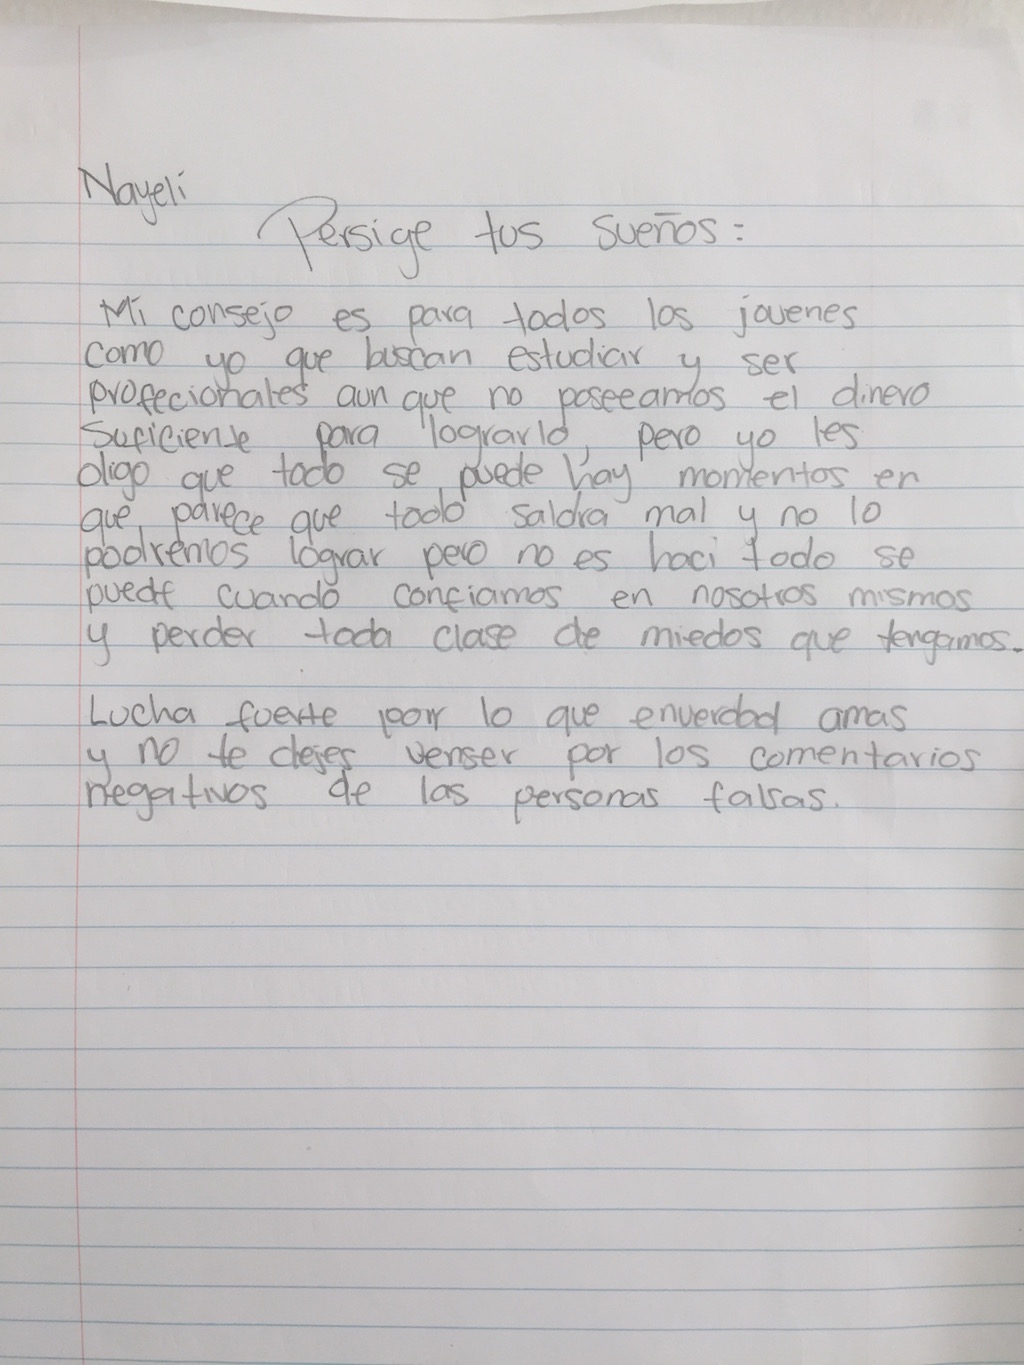 Nayeli
Persige tus sueños:
Mi consejo es para todos los jovenes
como yo que buscan estudiar y ser
profecionales aun que no poseeamos el dinero
suficiente para lograrlo, pero yo les
digo que todo se puede hay momentos en
que parece que todo saldra mal y no lo
podremos lograr pero no es haci todo se
puede cuando confiamos en nosotros mismos
y perder toda clase de miedos que tengamos.
Lucha fuerte por lo que enverdad amas
y no te dejes venser por los comentarios
negativos de las personas falsas.